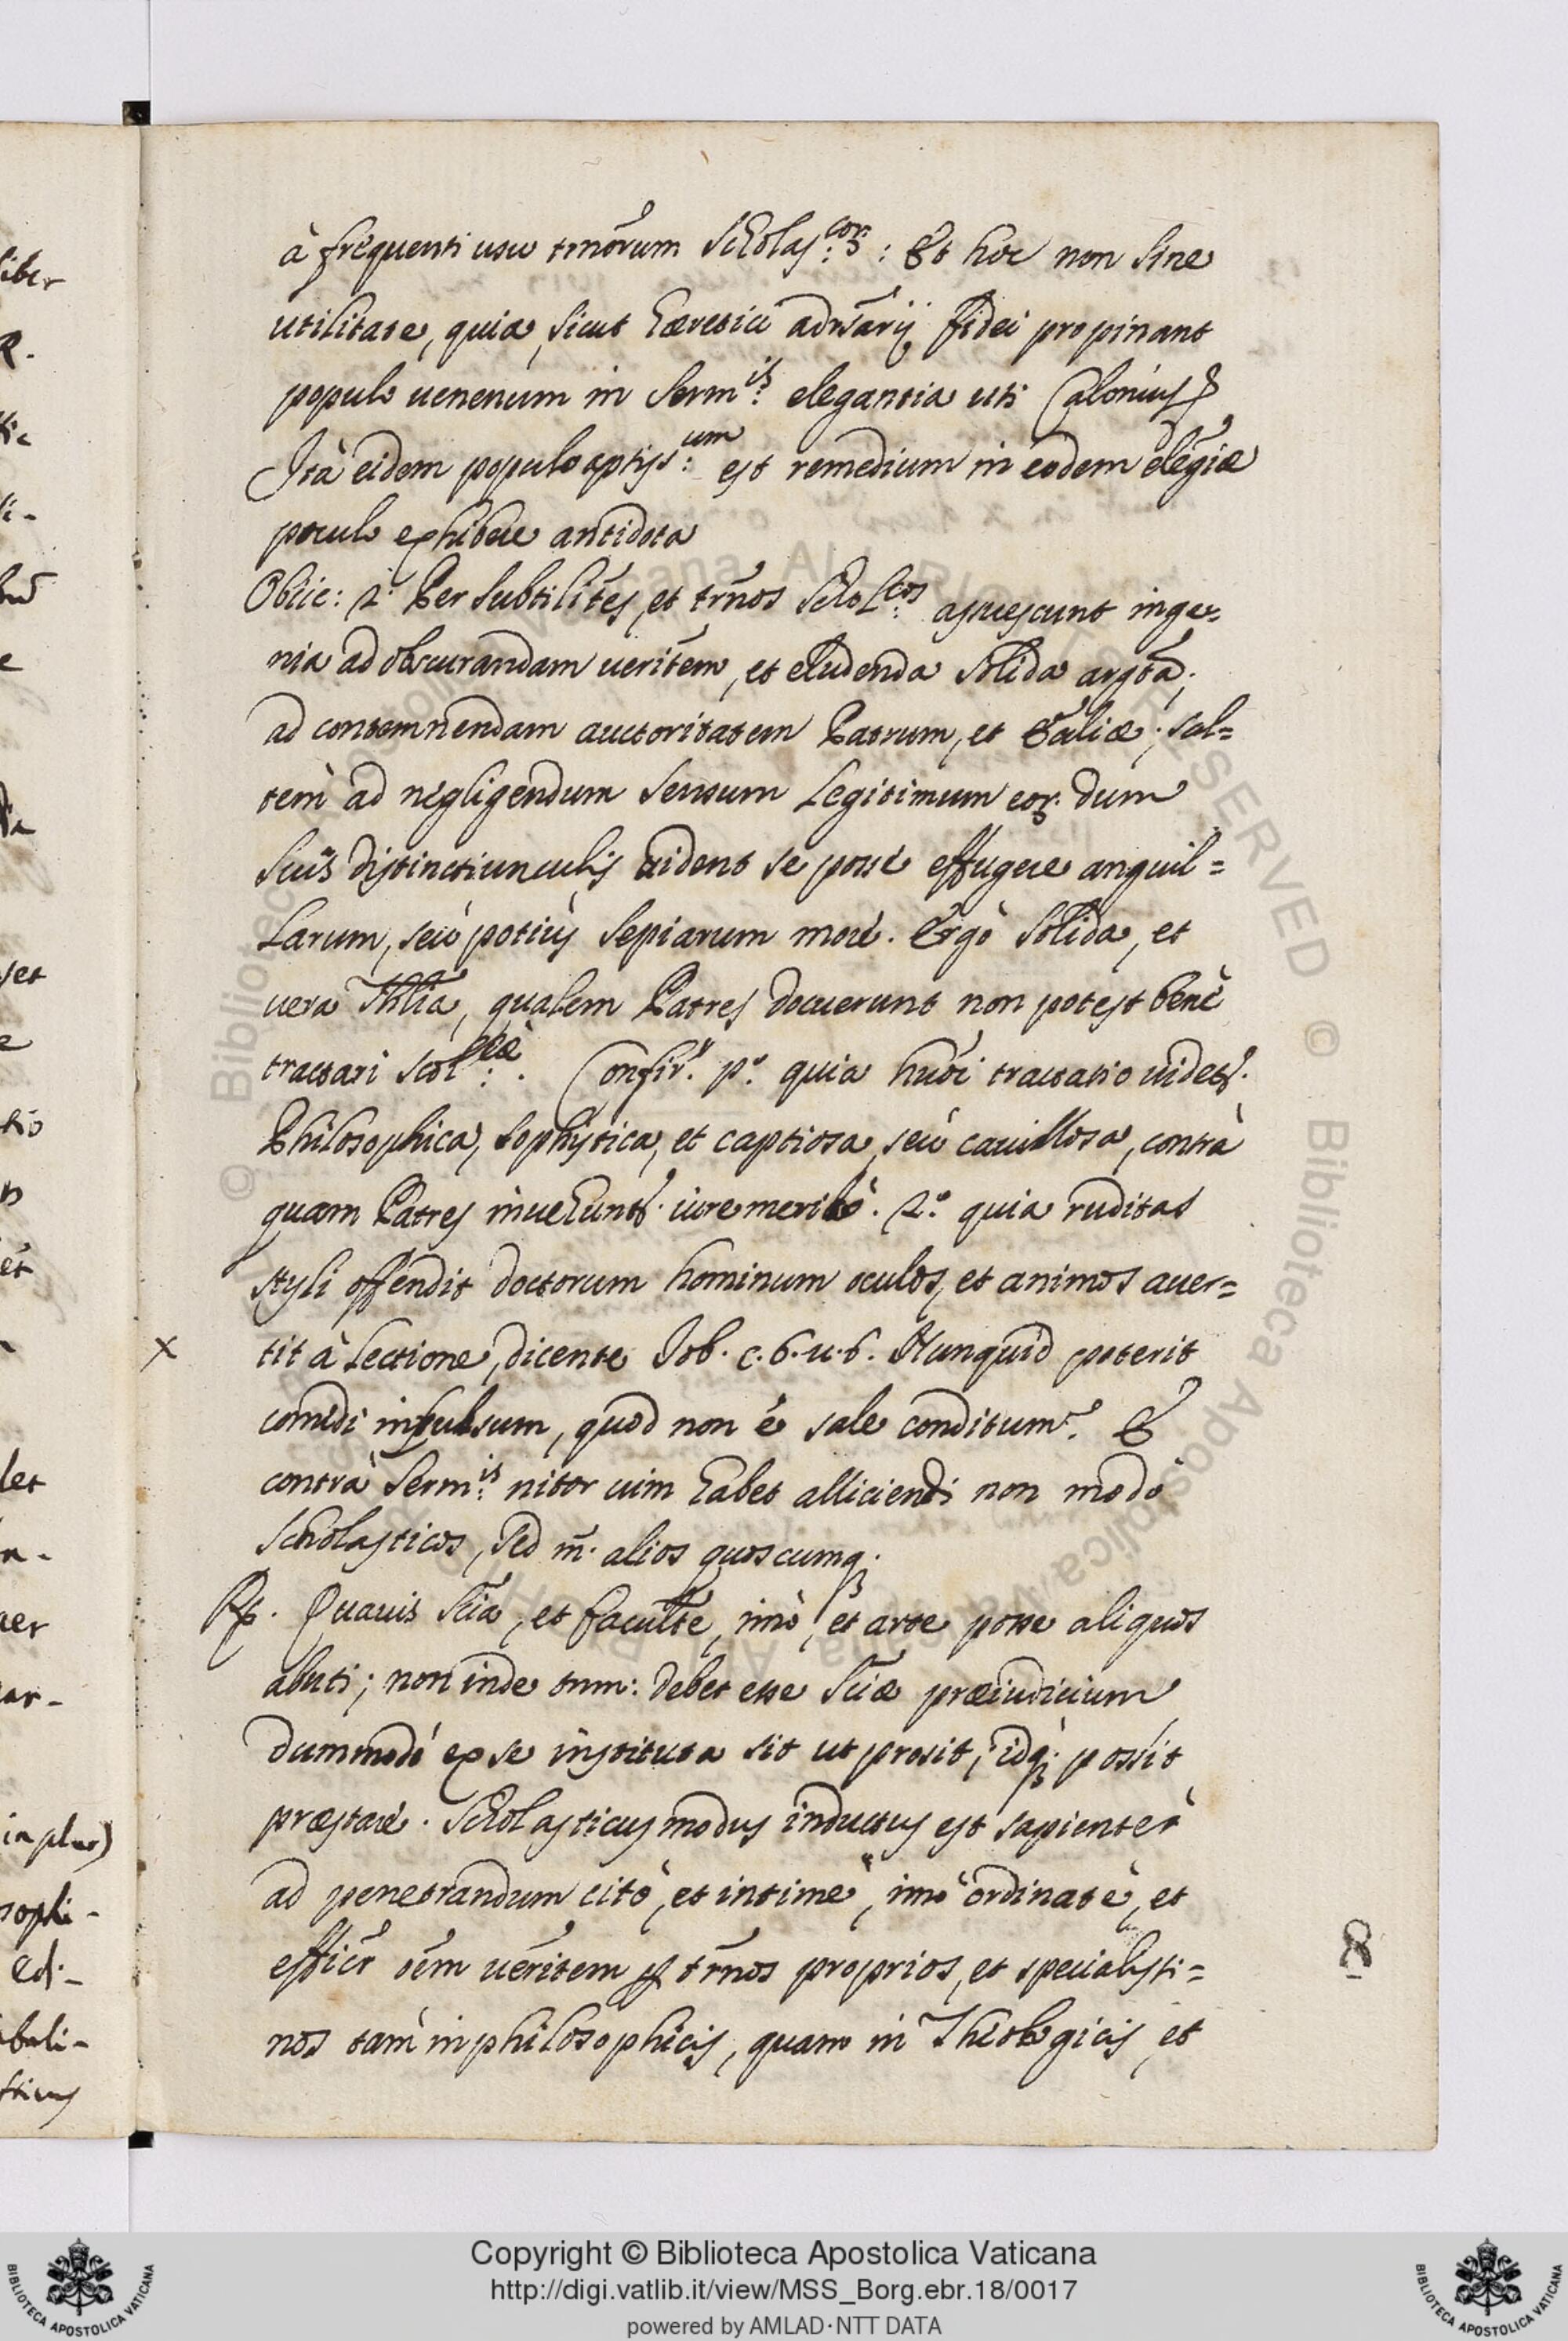 à frequenti usu tmõrum Scholas:corũ: Et hoc non sine
utilitate, quia, sicut hæretici adr̃sarij fidei propinant
populo uenenum in serm:is elegantia uti Caloniusꝭ
Ità eidem populo aptiss:um est remedium in eodem elẽgiæ
poculo exhibere antidota
Obiic: 2.º Per subtilitẽs, et tr̃nos Schol:cos assuescunt inge=
nia ad obscurandam ueritẽm, et eludenda solida argt̃a;
ad contemnendam auctoritatem Patrum, et; sal=
tem ad negligendum sensum legitimum eor. dum
suis distinctiunculis uident se posse effugere anguil=
larum, seù potiùs sepiarum more. Ergò solida, et
uera Thlia, qualem Patres docuerunt non potest benè
tractari scol:cè. Confir.r p.º quia huõi tractatio uidetr.
Philosophica, sophistica, et captiosa, seù cauillosa, contrà
quam Patres inuehuntr. iure meritò. 2.º quia ruditas
styli offendit doctorum hominum oculos, et animos auer=
x tit à lectione, dicente Iob. c. 6. u. 6. Nunquid poterit
comedi insulsum, quod non è sale conditum? &
contrà serm:is nitor uim habet alliciendi non modò
Scholasticos, sed m̃. alios quoscumq.
R. Quauis scĩa, et facultẽ, imò, et arte posse aliquos
abuti; non inde tmm: debet esse sciæ præiudicium
dummodò ex se instituta sit ut prosit, idq. possit
præstare. Scholasticus modus inductus est sapientèr
ad penetrandum citò, et intimè, imò ordinatè, et
efficr̃ oẽm uẽritem ꝑ tr̃mnos proprios, et specialissi=
mos tam in philosophicis, quam in Theologicis, et
8
Copyright © Biblioteca Apostolica Vaticana
http://digi.vatlib.it/view/MSS_Borg.ebr.18/0017
powered by AMLAD·NTT DATA
BIBLIOTECA APOSTOLICA VATICANA
BIBLIOTECA APOSTOLICA VATICANA